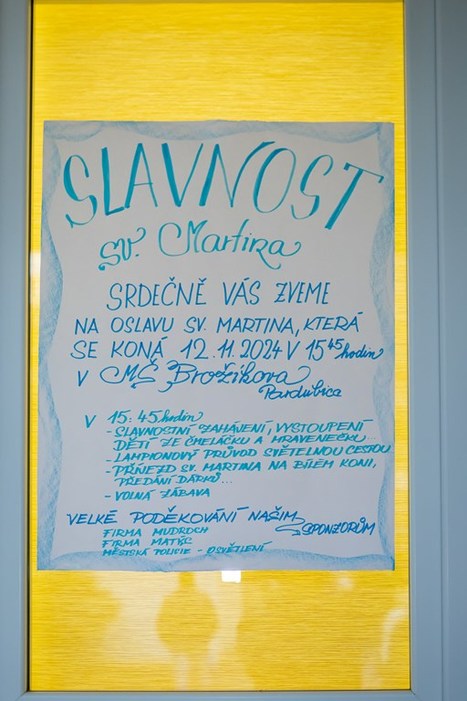 SLAVNOST
SV. Martina
SRDEČNĚ VÁS ZVEME
NA OSLAVU SV. MARTINA, KTERÁ
SE KONÁ 12. 11. 2024 V 15 45 hodin
V MŠ Brožíkova
Pardubice
V 15:45 hodin
- SLAVNOSTNÍ ZAHÁJENÍ, VYSTOUPENÍ
DĚTÍ ZE ČMELÁČKU A MRAVENEČKU
- LAMPIONOVÝ PRŮVOD SVĚTELNOU CESTOU
- PŘÍJEZD SV. MARTINA NA BÍLÉM KONI,
PŘEDÁNÍ DÁRKŮ...
- VOLNÁ ZÁBAVA
VELKÉ PODĚKOVÁNÍ NAŠIM
SPONZORŮM
FIRMA MUDROCH
FIRMA MATÝS
MĚSTSKÁ POLICIE - OSVĚTLENÍ